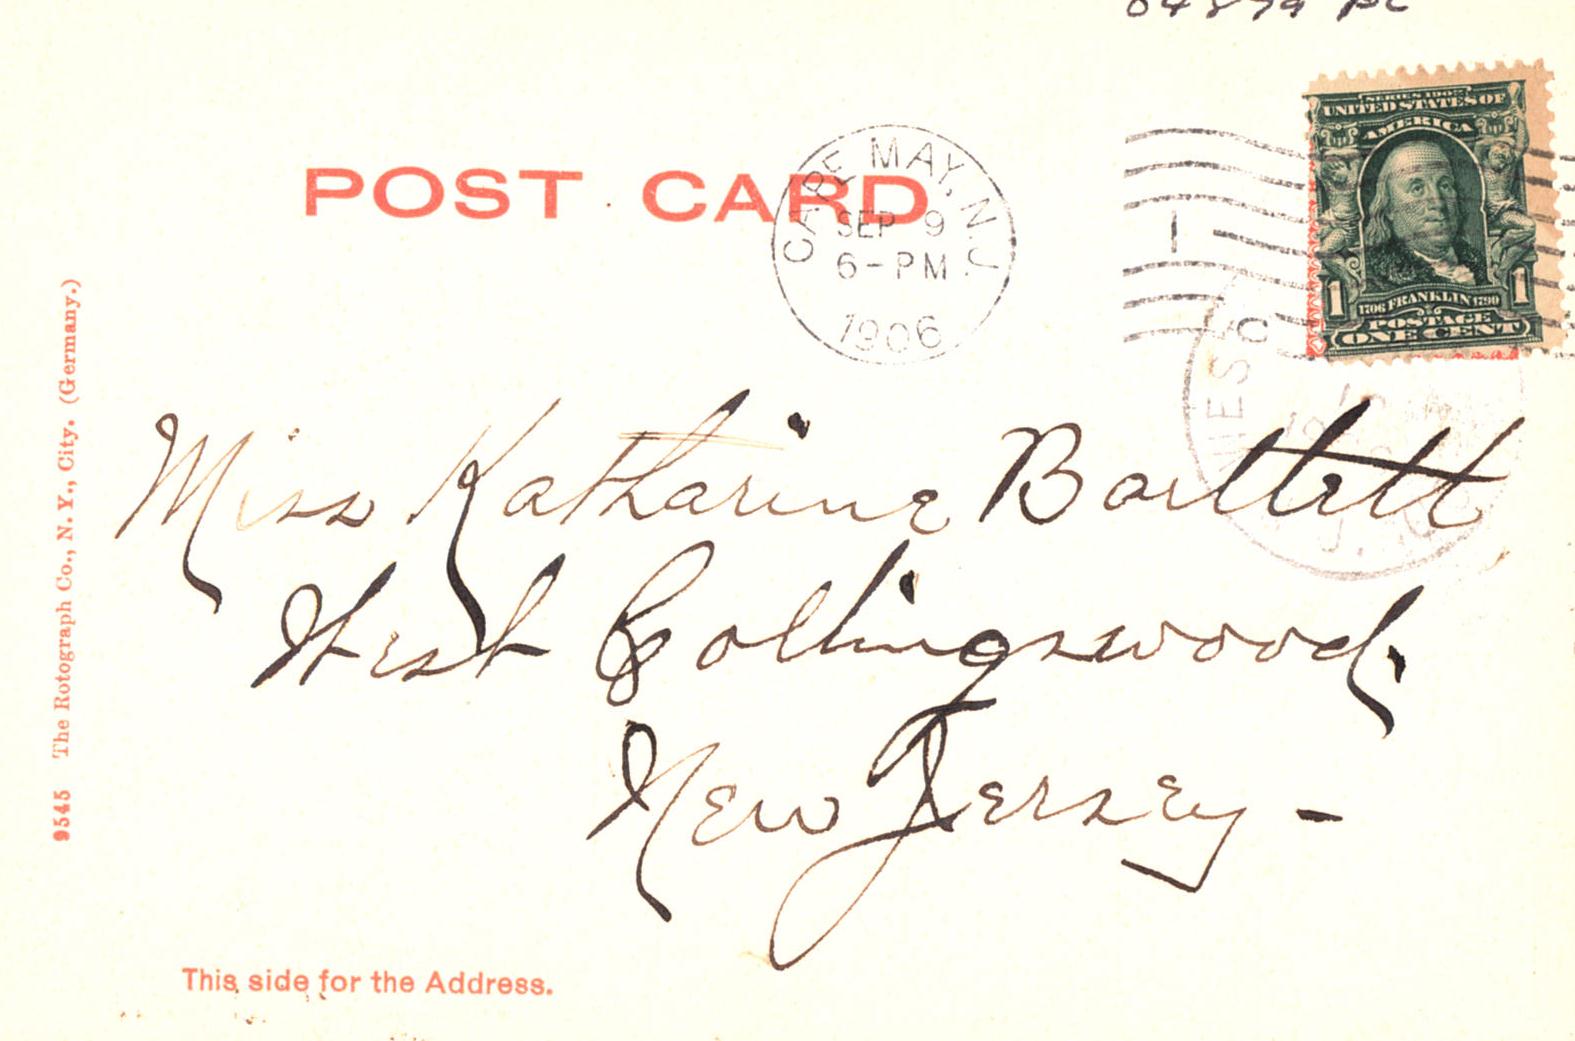 POST CARD
CAPE MAY, N.J.
SEP 9
6-PM
1906
1
SERIES 1902
UNITED STATES OF
AMERICA
1 1
1706 FRANKLIN 1790
POSTAGE
ONE CENT
Miss Katharine Bartlett
West Collingswood,
New Jersey -
9545 The Rotograph Co., N. Y., City. (Germany.)
This side for the Address.